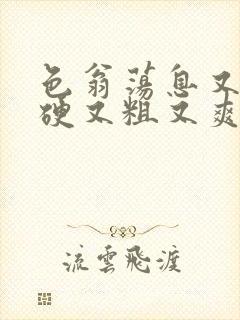 色翁荡息又
硬又粗又爽
流雲飛渡